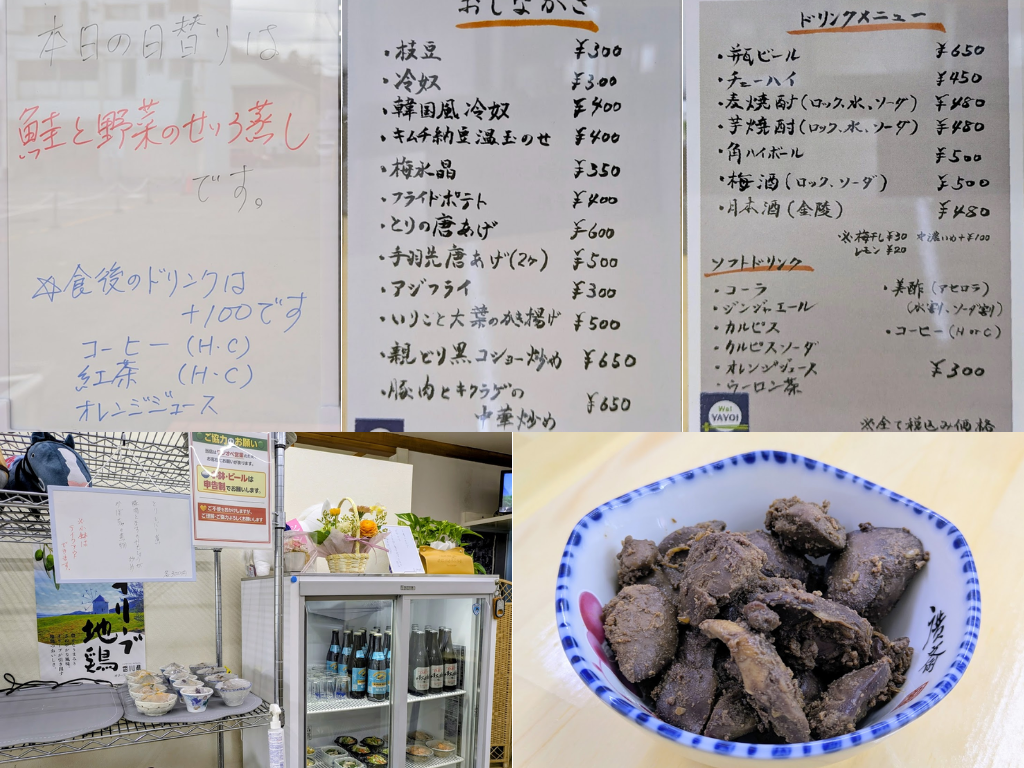 本日の日替りは
鮭と野菜のせいろ蒸し
です。
※食後のドリンクは
+100です
コーヒー (H・C)
紅茶 (H・C)
オレンジジュース
おしながき
・枝豆 ¥300
・冷奴 ¥300
・韓国風冷奴 ¥400
・キムチ納豆温玉のせ ¥400
・梅水晶 ¥350
・フライドポテト ¥400
・とりの唐あげ ¥600
・手羽先唐あげ(2ヶ) ¥500
・アジフライ ¥300
・いりこと大葉のかき揚げ ¥500
・親どり黒コショー炒め ¥650
・豚肉とキクラゲの
中華炒め ¥650
ドリンクメニュー
・瓶ビール ¥650
・チューハイ ¥450
・麦焼酎(ロック、水、ソーダ) ¥480
・芋焼酎(ロック、水、ソーダ) ¥480
・角ハイボール ¥500
・梅酒(ロック、ソーダ) ¥500
・日本酒(金陵) ¥480
※梅干し¥30 ※濃いめ+¥100
レモン¥20
ソフトドリンク
・コーラ
・ジンジャエール
・カルピス
・クルピスソーダ
・オレンジジュース
・ウーロン茶
・美酢(アセロラ)
(水割り、ソーダ割り)
・コーヒー(H or C)
¥300
※全て税込み価格
Wai
YAYOI
ご協力のお願い
小鉢・ビールは
申告制でお願いします。
オリーブ
地鶏